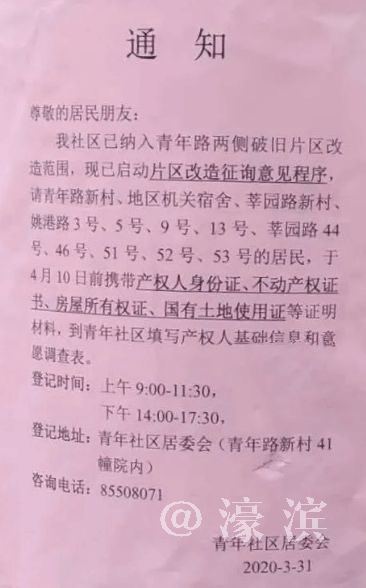 通 知
尊敬的居民朋友：
我社区已纳入青年路两侧破旧片区改
造范围，现已启动片区改造征询意见程序，
请青年路新村、地区机关宿舍、莘园路新村、
姚港路3号、5号、9号、13号、莘园路44
号、46号、51号、52号、53号的居民，于
4月10日前携带产权人身份证、不动产权证
书、房屋所有权证、国有土地使用证等证明
材料，到青年社区填写产权人基础信息和意
愿调查表。
登记时间：上午 9:00-11:30，
下午 14:00-17:30，
登记地址：青年社区居委会（青年路新村41
幢院内）
咨询电话：85508071
@濠滨
青年社区居委会
2020-3-31